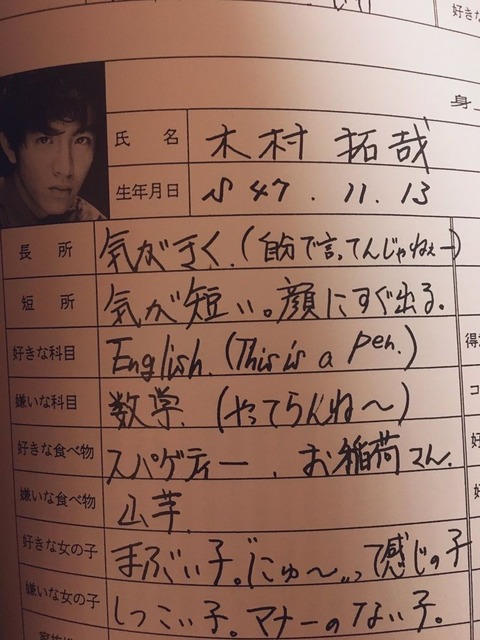 好きな
身
氏 名 木村 拓哉
生年月日 S 47. 11. 13
長 所 気がきく.(自分で言ってんじゃねぇー)
短 所 気が短い。顔にすぐ出る.
好きな科目 English. (This is a pen.)
得意
嫌いな科目 数学. (やってらんね〜)
コ
好きな食べ物 スパゲティー、お稲荷さん.
好
嫌いな食べ物 山芋.
好
好きな女の子 まぶい子。"にゅ〜"って感じの子
嫌いな女の子 しつこい子。マナーのない子。